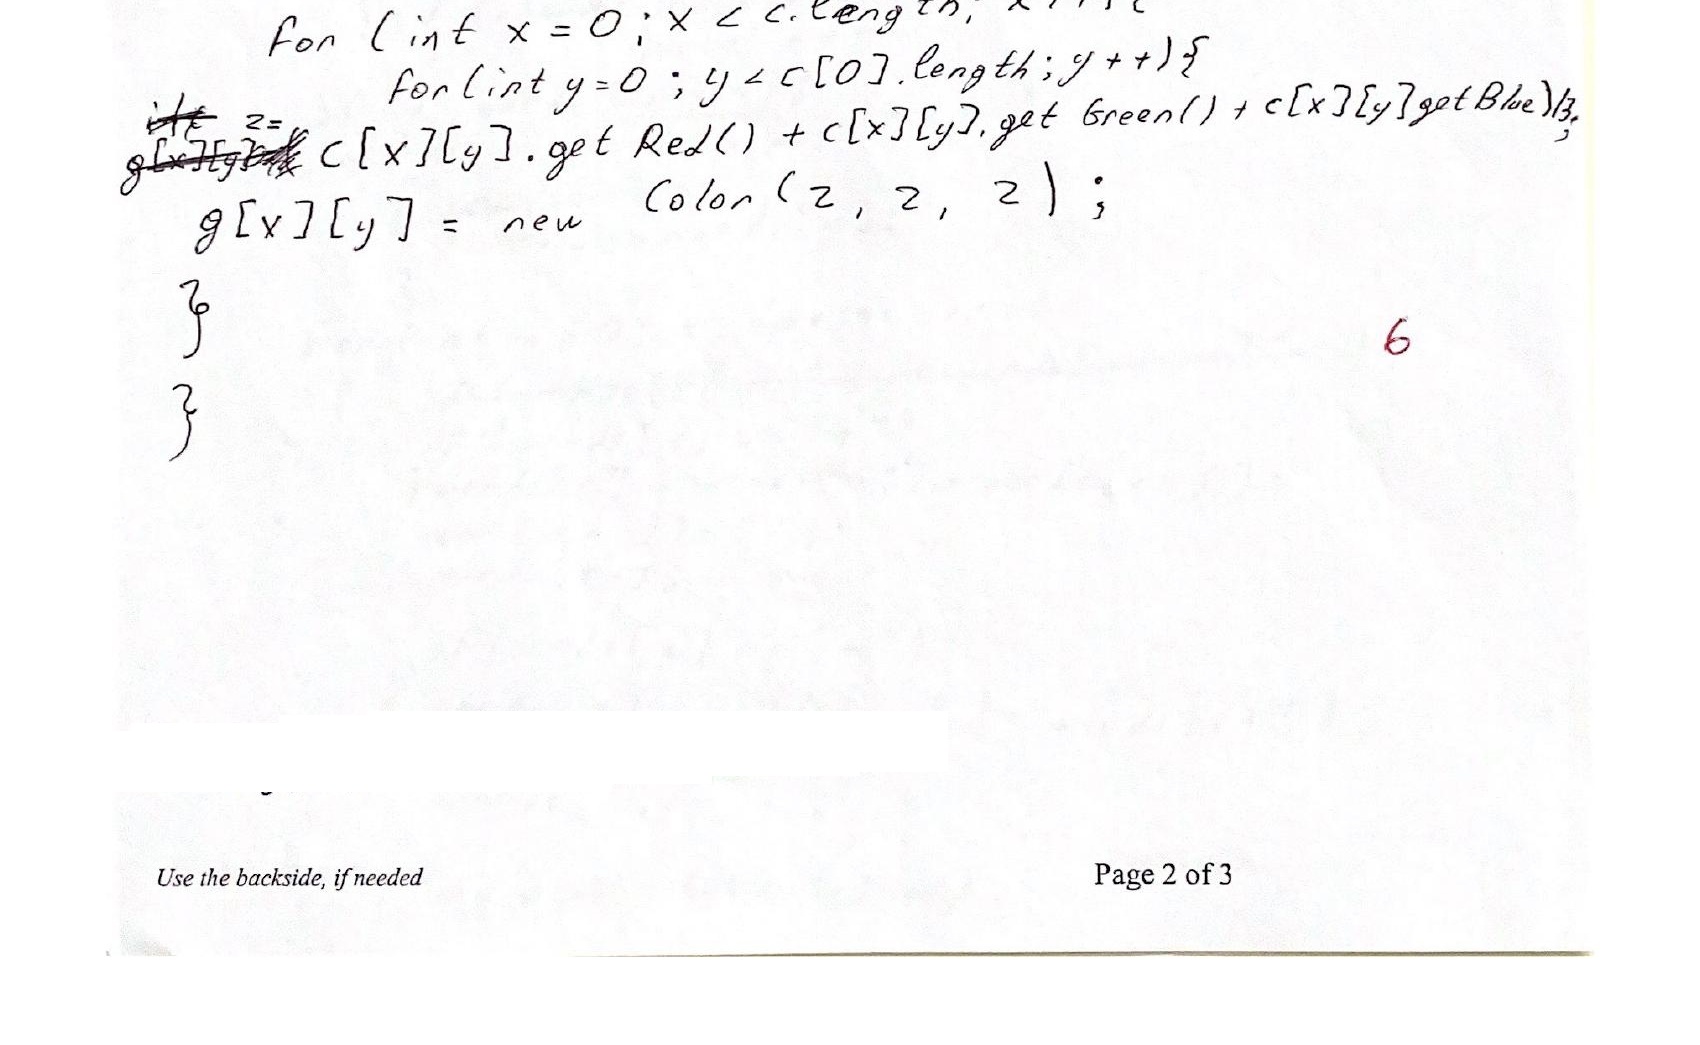 for (int x = 0; x < c.length;
for (int y = 0; y < c[0].length; y++) {
z=
c[x][y].get Red() + c[x][y].get Green() + c[x][y]getBlue)/3;
g[x][y] = new Color (z, z, z);
}
6
}
Use the backside, if needed
Page 2 of 3